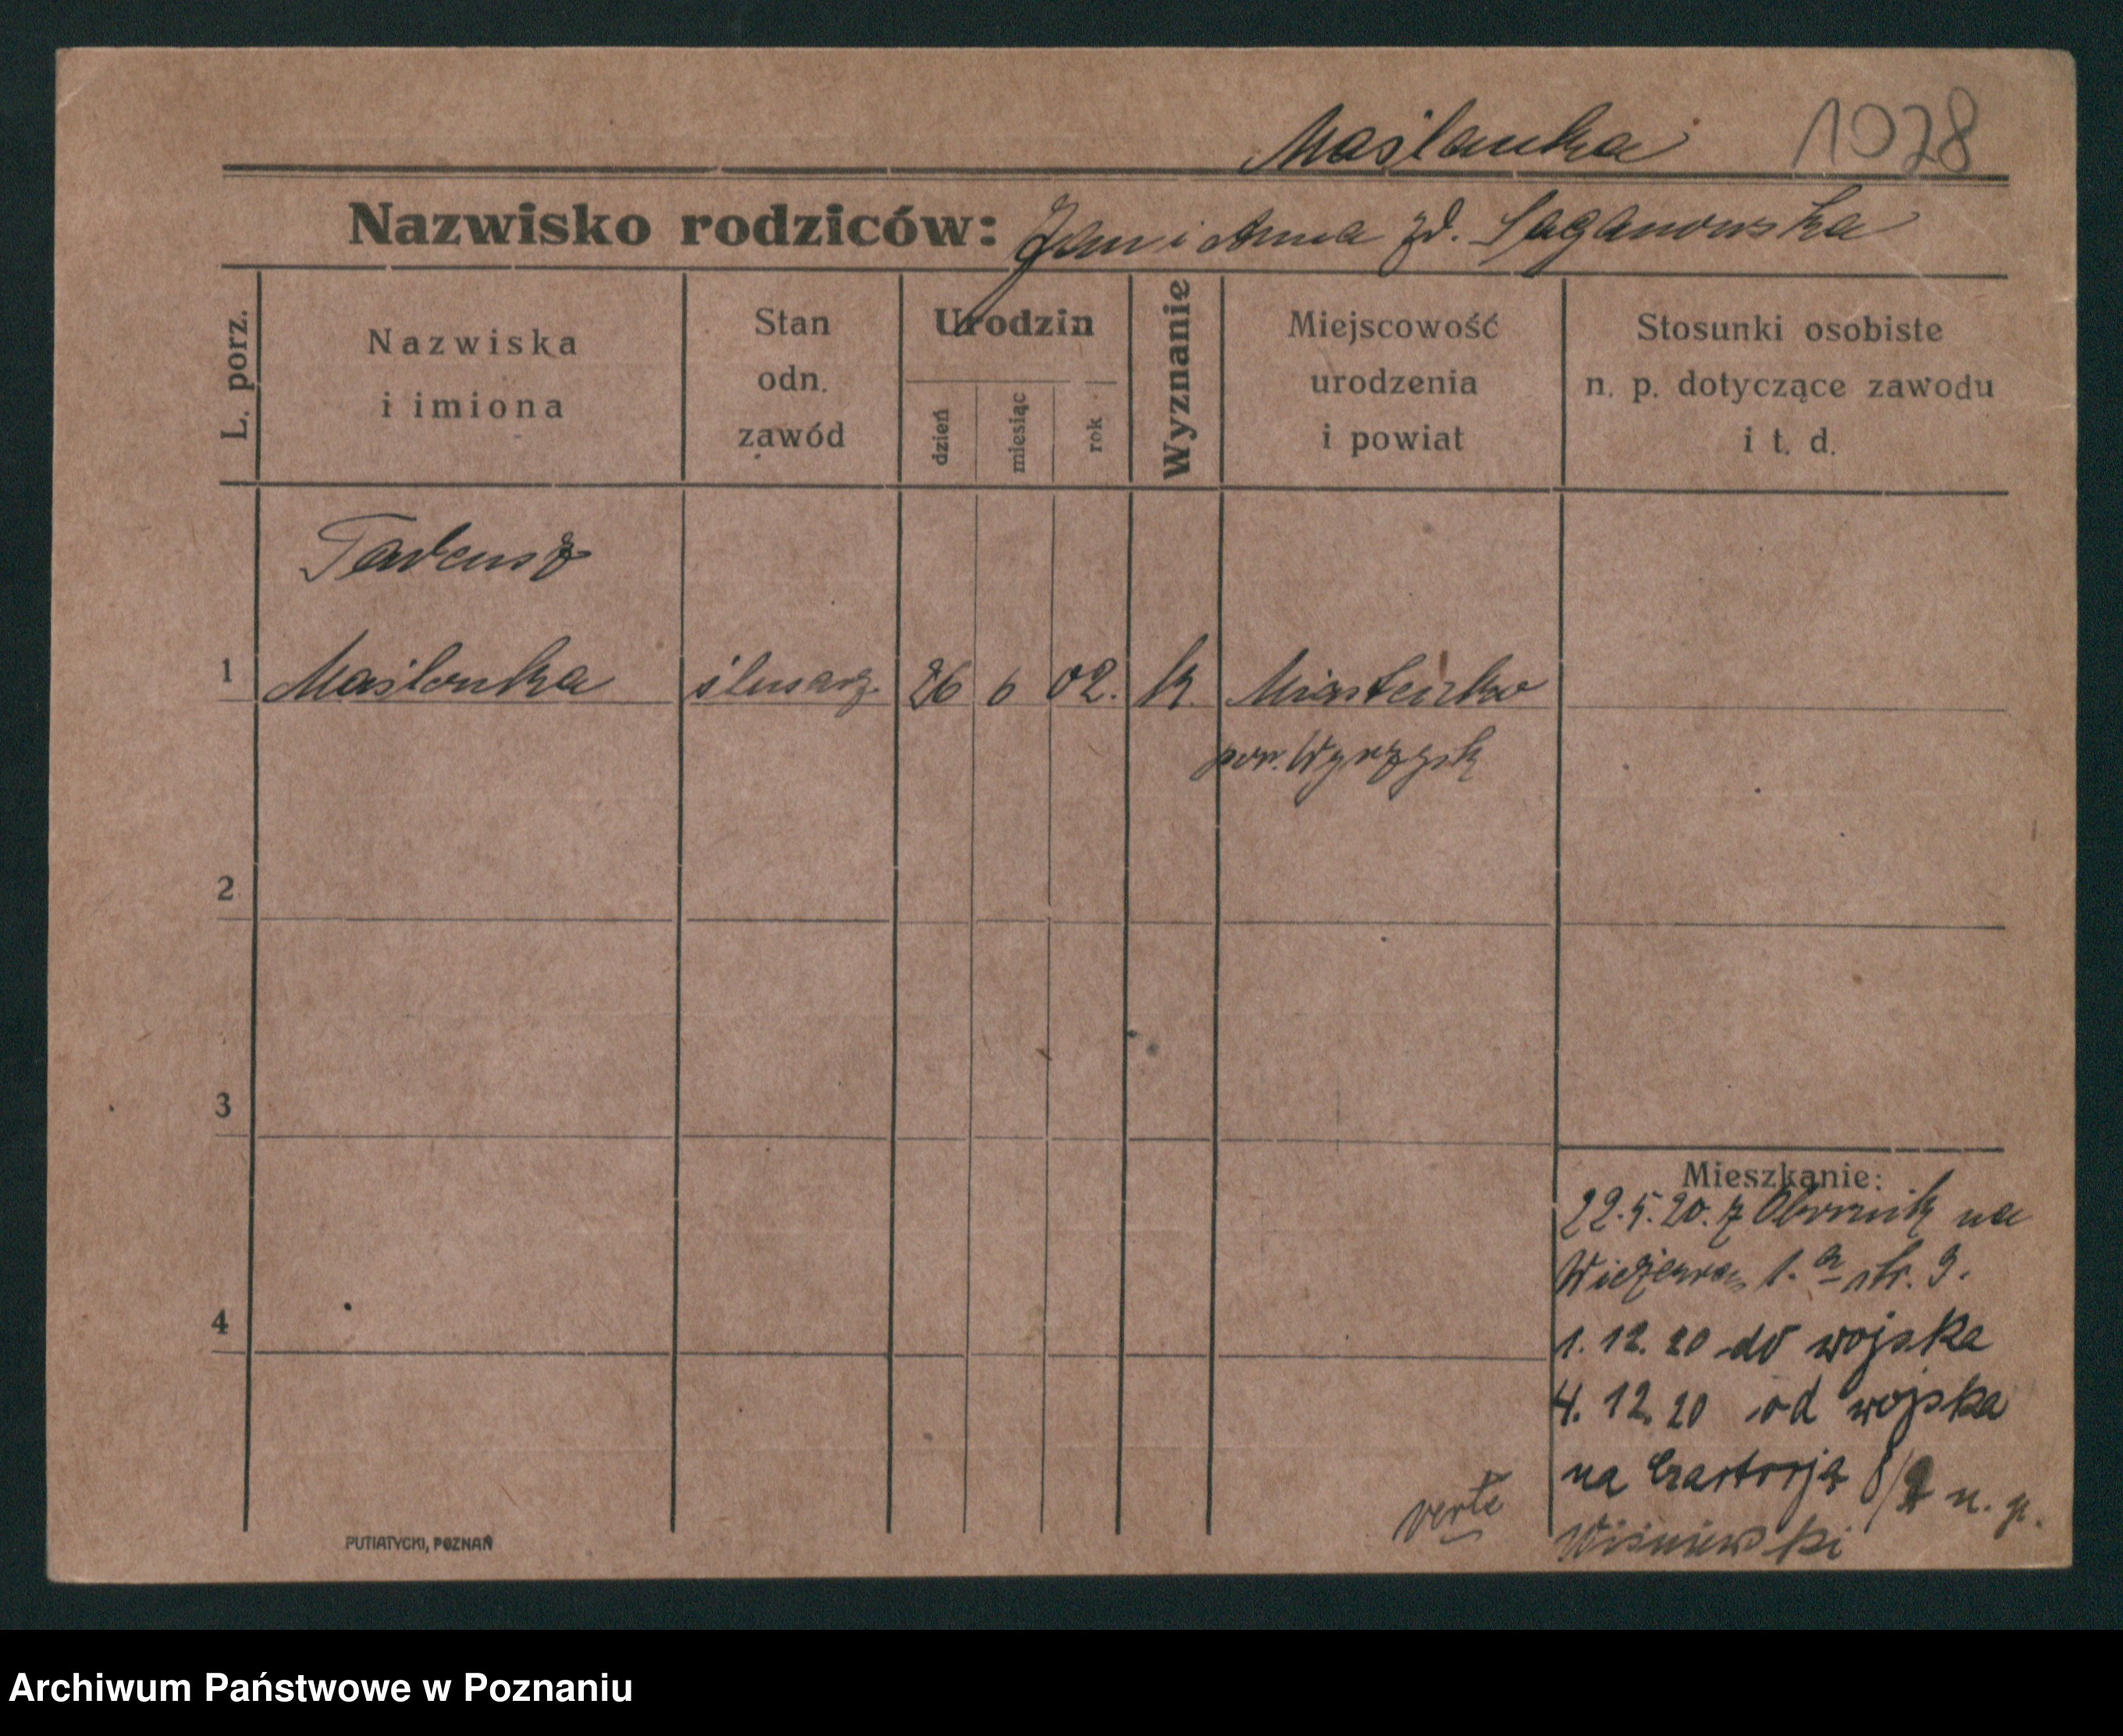 Maślanka 1028
Nazwisko rodziców: Jan i Anna zd. Saganowska
L. porz.
Nazwiska
i imiona
Stan
odn.
zawód
Urodzin
dzień
miesiąc
rok
Wyznanie
Miejscowość
urodzenia
i powiat
Stosunki osobiste
n. p. dotyczące zawodu
i t. d.
Tadeusz
1 Maślanka ślusarz 26 6 02. k. Miasteczko
pow. Wyrzysk
2
3
Mieszkanie:
22.5.20. z Obornik na
1. str. 3.
4
1. 12. 20 do wojska
4. 12. 20 od wojska
na Czartorją 8/ n. p.
verte
Wiśniewski
PUTIATYCKI, POZNAŃ
Archiwum Państwowe w Poznaniu